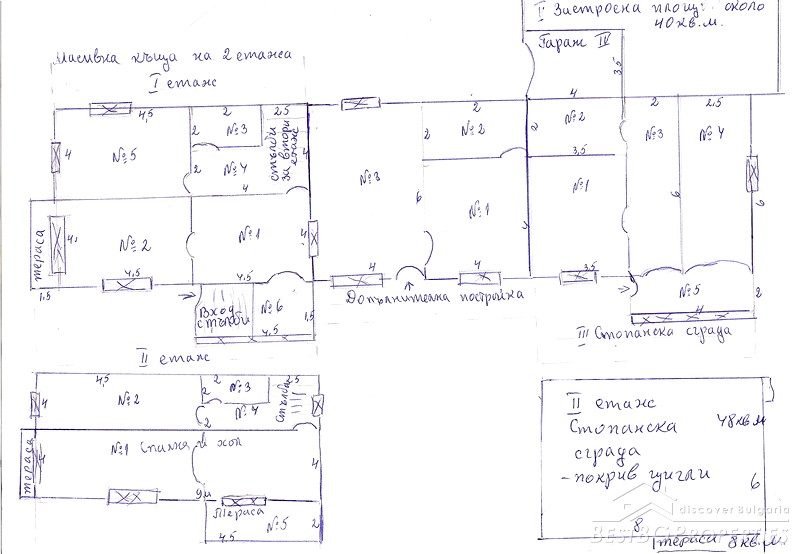 I Застроена площ: около
40 кв.м.
Гараж IV
3,5
Масивна къща на 2 етажа
I етаж
4,5
2
2,5
4
№5
2
№3
стълби
за втори
етаж
2
№4
4
4
№3
6
2
2
№2
4
№2
2
3,5
№1
2
№3
2,5
№4
6
6
тераса
4,
№2
4,5
1,5
№1
4
4,5
№1
4
4
4
3,5
№5
2
4
Вход
стълби
№6
1,5
4,5
Допълнителна постройка
III Стопанска сграда
II етаж
4,5
4
№2
2
2
№3
№4
2
2,5
стълба
тераса
4
№1 Спалня и хол
4
Тераса
№5
2
4,5
II етаж
Стопанска
сграда
- покрив цигли
48 кв.м
6
8
тераса 8 кв.м.
discover Bulgaria
BESTBGPROPERTIES